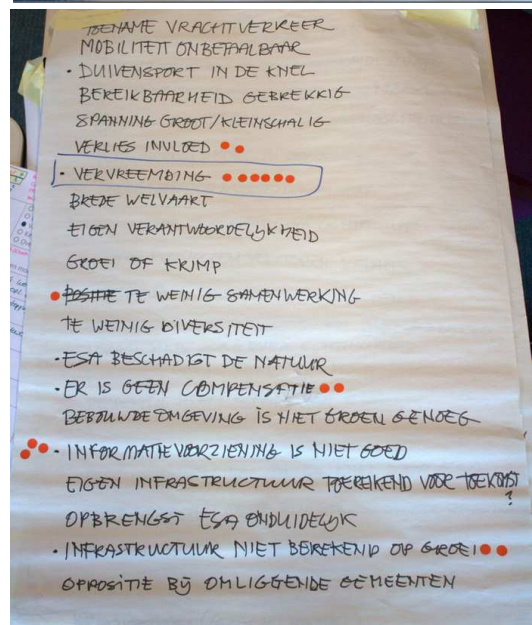 TOENAME VRACHTVERKEER
MOBILITEIT ONBETAALBAAR
· DUIVENSPORT IN DE KNEL
BEREIKBAARHEID GEBREKKIG
SPANNING GROOT/KLEINSCHALIG
VERLIES INVLOED
· VERVREEMDING
BREDE WELVAART
EIGEN VERANTWOORDELIJKHEID
GROEI OF KRIMP
POSITIE TE WEINIG SAMENWERKING
TE WEINIG DIVERSITEIT
· ESA BESCHADIGT DE NATUUR
· ER IS GEEN COMPENSATIE
BEBOUWDE OMGEVING IS NIET GROEN GENOEG
· INFORMATIEVOORZIENING IS NIET GOED
EIGEN INFRASTRUCTUUR TOEREIKEND VOOR TOEKOMST
?
OPBRENGST ESA ONDUIDELIJK
· INFRASTRUCTUUR NIET BEREKEND OP GROEI
OPPOSITIE BIJ OMLIGGENDE GEMEENTEN